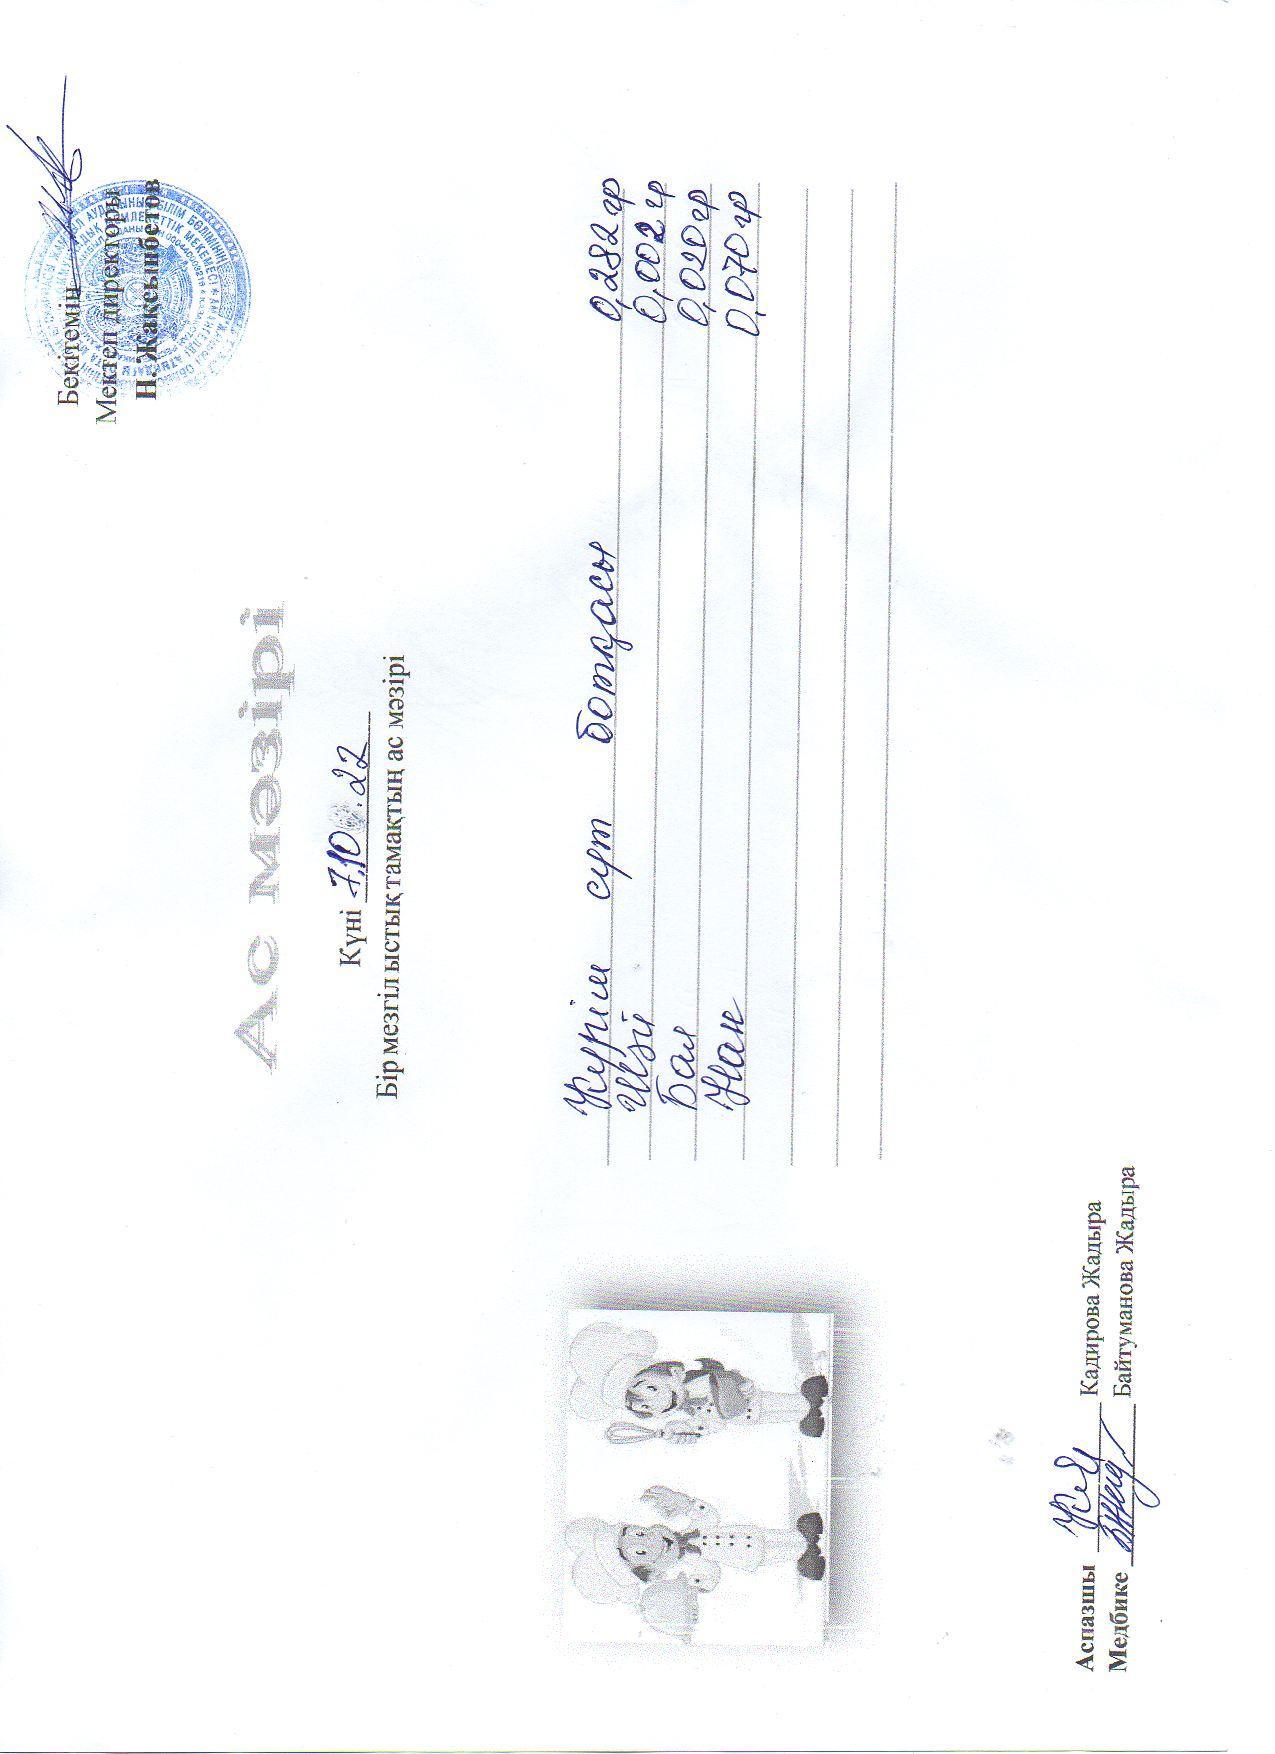 Бекітемін
Мектеп директоры
Н. Жақсынбетов
Ас мәзірі
Күні 7.10.22
Бір мезгіл ыстық тамақтың ас мәзірі
Күріш сүт ботқасы 0,282 гр
Шәй 0,002 гр
Бал 0,020 гр
Нан 0,070 гр
Аспазшы Кадирова Жадыра
Медбике Байтуманова Жадыра